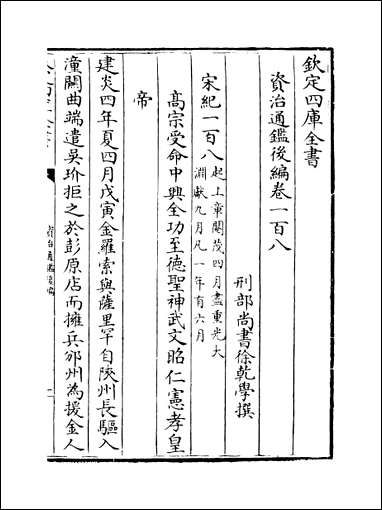 欽定四庫全書
資治通鑑後編卷一百八
刑部尚書徐乾學撰
宋紀一百八起上章閹茂四月盡重光大
淵獻九月凡一年有六月
高宗受命中興全功至德聖神武文昭仁憲孝皇
帝
建炎四年夏四月戊寅金羅索與薩里罕自陜州長驅入
潼關曲端遣吳玠拒之於彭原店而擁兵邠州為援金人
資治通鑑後編